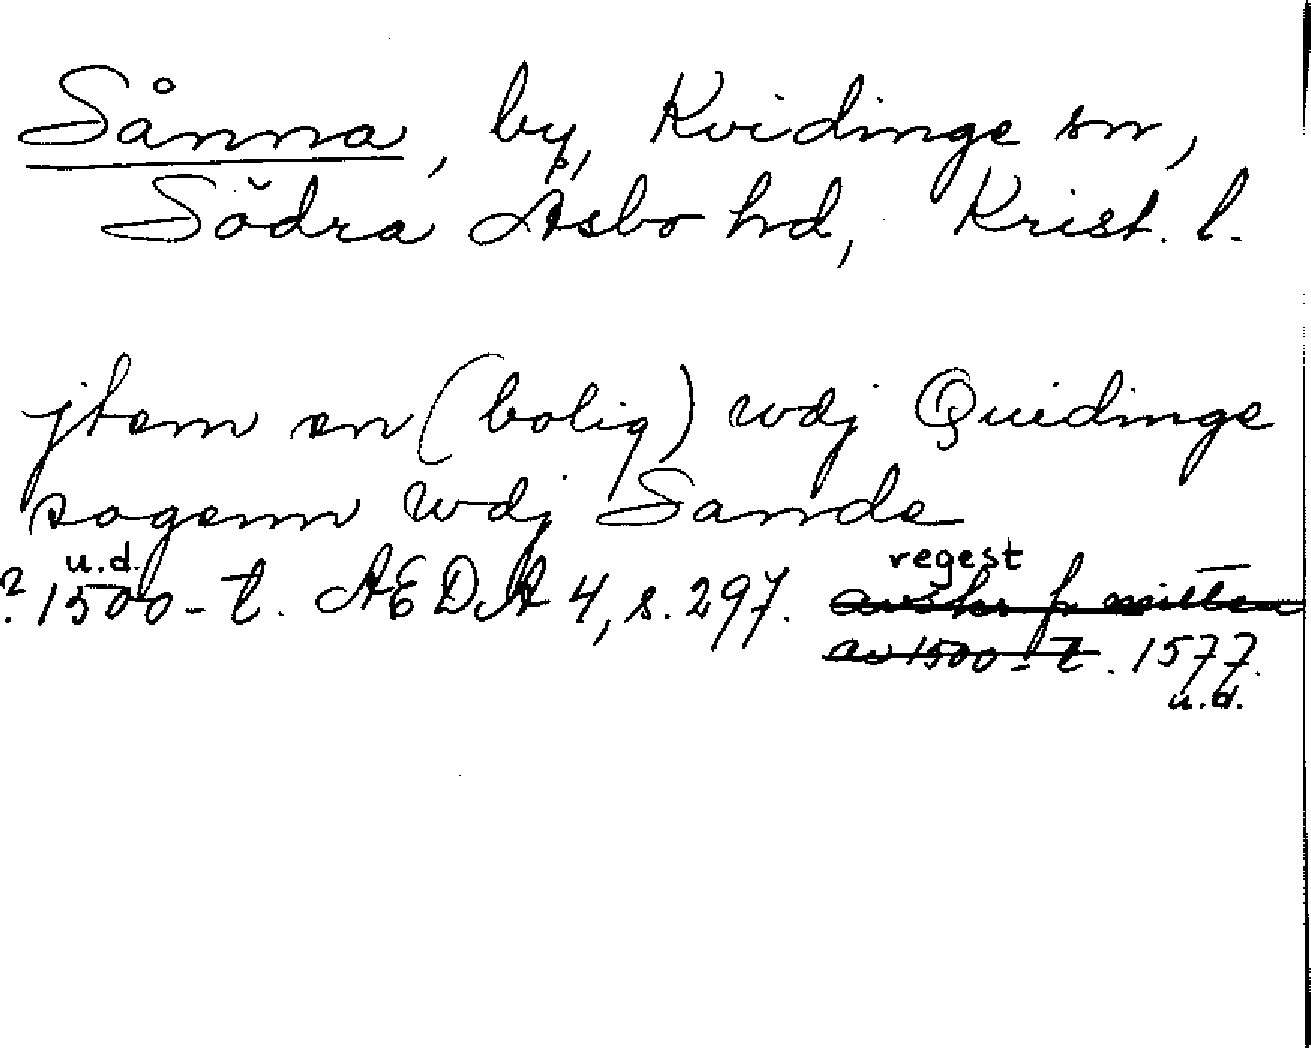 Sånna, by, Kvidinge sn,
Södra Åsbo hd, Krist. l.
jtem en (bolig) wdj Quidinge
sogenn wdj Sande
u.d. regest
? 1500-t. AEDA 4, s. 297. avskr fr mitten
av 1500-t. 1577.
u.d.